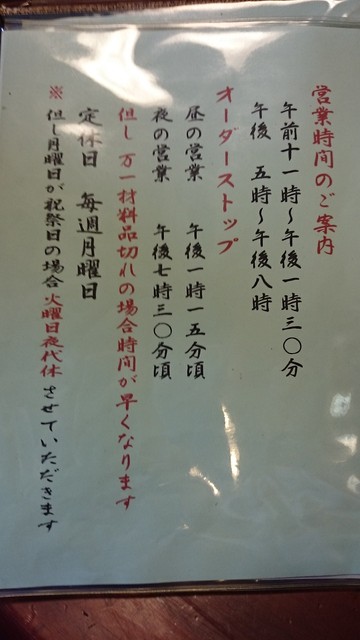 営業時間のご案内
午前十一時～午後一時三〇分
午後　五時～午後八時
オーダーストップ
昼の営業　午後一時一五分頃
夜の営業　午後七時三〇分頃
但し　万一材料品切れの場合時間が早くなります
定休日　毎週月曜日
※　但し月曜日が祝祭日の場合　火曜日夜代休　させていただきます